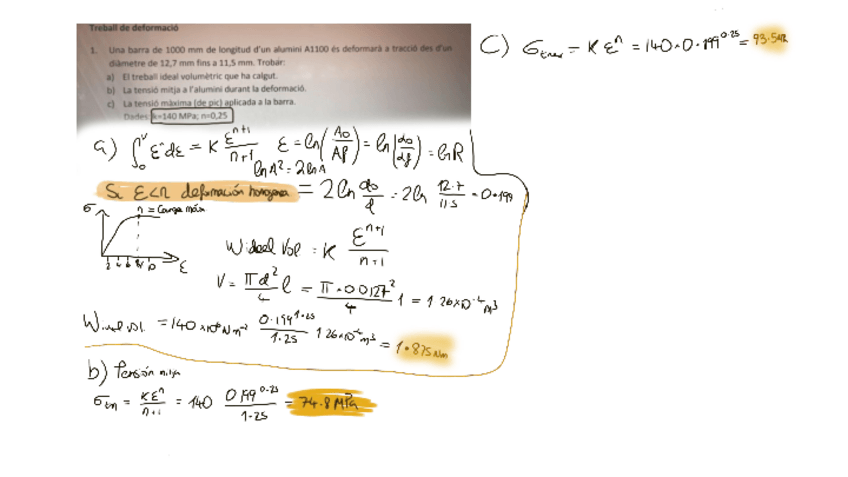 Treball de deformació
1. Una barra de 1000 mm de longitud d'un alumini A1100 és deformarà a tracció des d'un
diàmetre de 12,7 mm fins a 11,5 mm. Trobar:
a) El treball ideal volumètric que ha calgut.
b) La tensió mitja a l'alumini durant la deformació.
c) La tensió màxima (de pic) aplicada a la barra.
Dades: k=140 MPa; n=0,25
a) ∫₀^V ε^n dε = K ε^(n+1)/(n+1) ε = ln(A0/Af) = ln(d0/df) = ln R
ln A² = 2 ln A
Si ε<n deformación homogenea = 2 ln d0/f = 2 ln 12.7/11.5 = 0.199
σ
n = Carga máx
ε
W ideal Vol = K ε^(n+1)/(n+1)
V = πd²/4 l = π·0.0127²/4 1 = 1.26×10^-4 m³
W ideal vol. = 140×10^6 Nm^-2 0.199^1.25/1.25 1.26×10^-4 m³ = 1.875 Nm
b) Tensión mitja
σm = Kε^n/(n+1) = 140 0.199^0.25/1.25 = 74.8 MPa
C) σmax = K ε^n = 140·0.199^0.25 = 93.5MPa